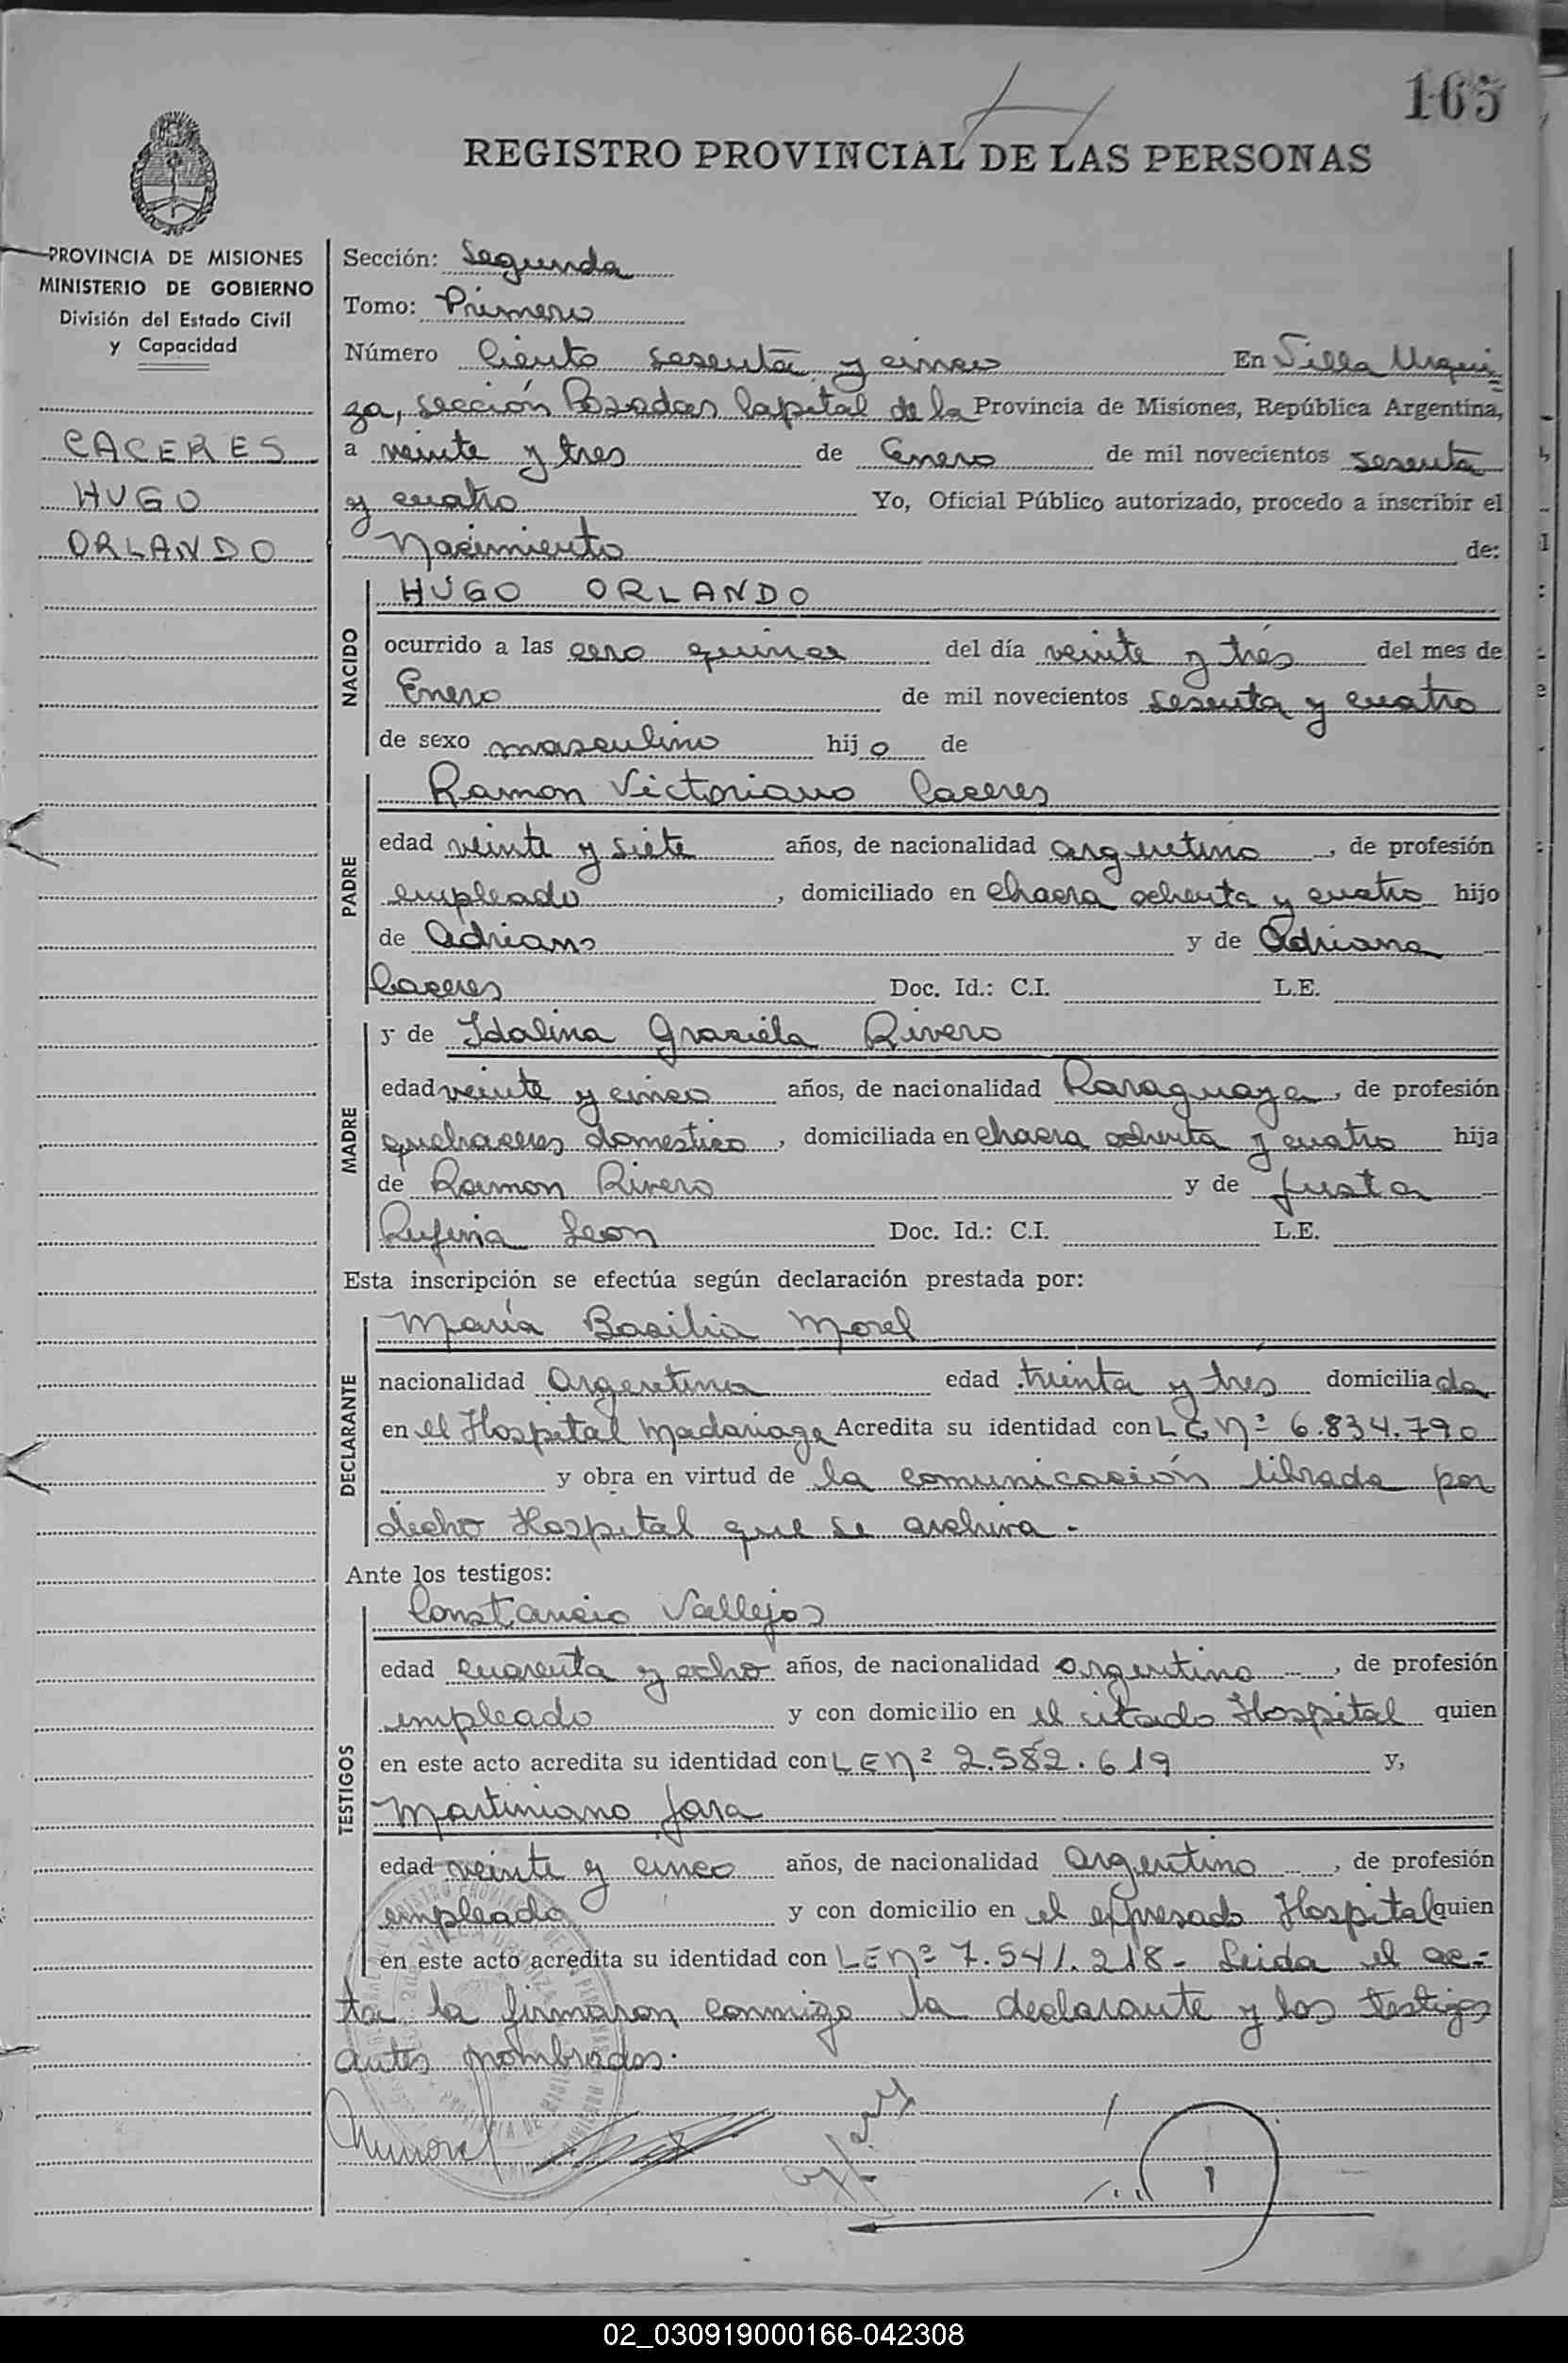 165
REGISTRO PROVINCIAL DE LAS PERSONAS
PROVINCIA DE MISIONES
MINISTERIO DE GOBIERNO
División del Estado Civil
y Capacidad
CACERES
HUGO
ORLANDO
Sección: Segunda
Tomo: Primero
Número Ciento sesenta y cinco En Villa Urqui
za, sección Posadas Capital de la Provincia de Misiones, República Argentina,
a veinte y tres de Enero de mil novecientos sesenta
y cuatro Yo, Oficial Público autorizado, procedo a inscribir el
Nacimiento de:
NACIDO
HUGO ORLANDO
ocurrido a las cero quince del día veinte y tres del mes de
Enero de mil novecientos sesenta y cuatro
de sexo masculino hijo de
PADRE
Ramon Victoriano Caceres
edad veinte y siete años, de nacionalidad argentino, de profesión
empleado, domiciliado en chacra ochenta y cuatro hijo
de Adriano y de Adriana
Caceres Doc. Id.: C.I. L.E.
MADRE
y de Idalina Graciela Rivero
edad veinte y cinco años, de nacionalidad Paraguaya, de profesión
quehaceres domestico, domiciliada en chacra ochenta y cuatro hija
de Ramon Rivero y de Justa
Rufina Leon Doc. Id.: C.I. L.E.
Esta inscripción se efectúa según declaración prestada por:
DECLARANTE
María Basilia Morel
nacionalidad Argentina edad treinta y tres domiciliada
en el Hospital Madariaga Acredita su identidad con L E Nº 6.834.790
y obra en virtud de la comunicación librada por
dicho Hospital que se archiva.-
Ante los testigos:
TESTIGOS
Constancio Vallejos
edad cuarenta y ocho años, de nacionalidad argentino, de profesión
empleado y con domicilio en el citado Hospital quien
en este acto acredita su identidad con L E Nº 2.582.619 y,
Martiniano Jara
edad veinte y cinco años, de nacionalidad Argentino, de profesión
empleado y con domicilio en el expresado Hospital quien
en este acto acredita su identidad con L E Nº 7.541.218- Leida el ac-
ta la firmaron conmigo la declarante y los testigos
antes nombrados.
02_030919000166-042308